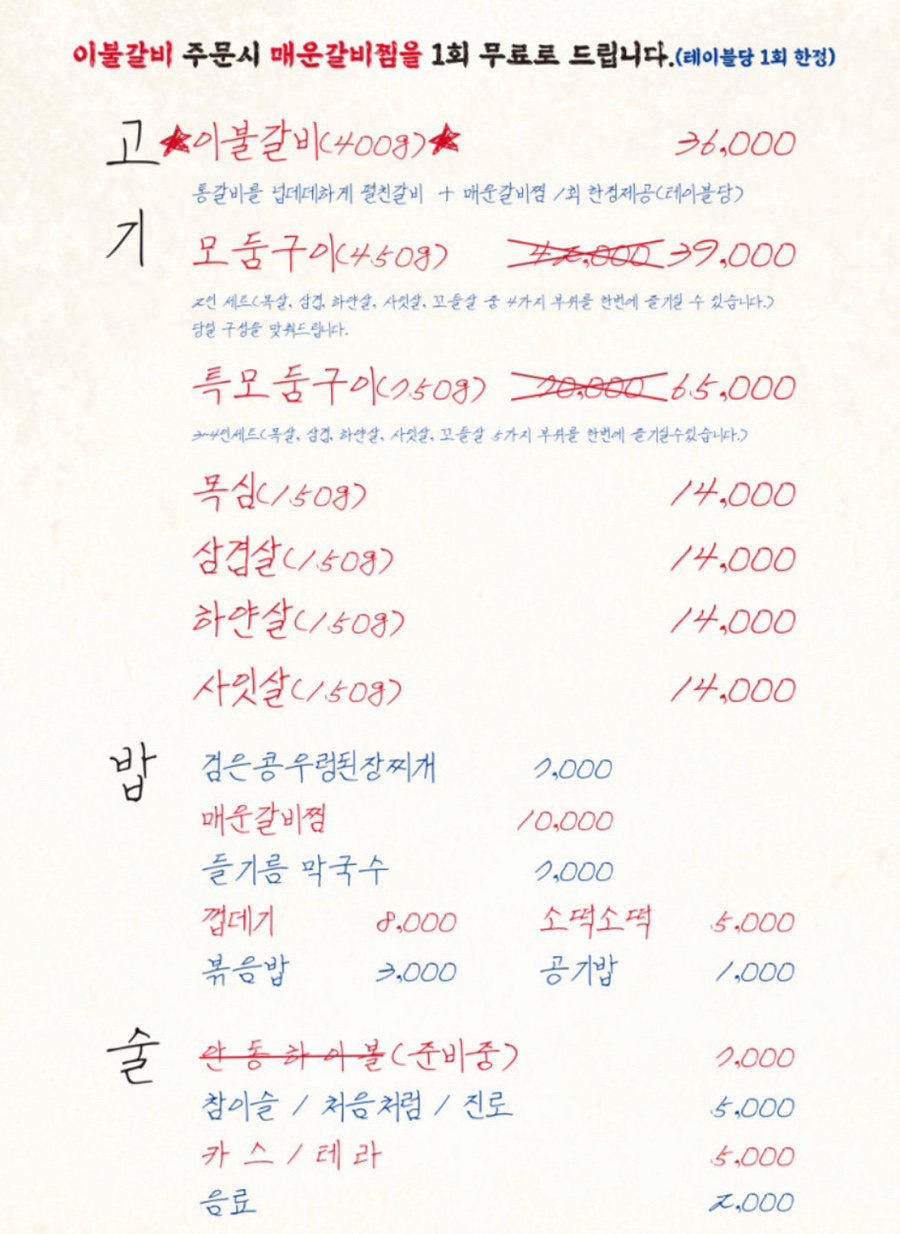 이불갈비 주문시 매운갈비찜을 1회 무료로 드립니다.(테이블당 1회 한정)
고기
★이불갈비(400g)★ 36,000
통갈비를 넙데데하게 펼친갈비 + 매운갈비찜 1회 한정제공(테이블당)
모둠구이(450g) 42,000 39,000
2인 세트(목살, 삼겹, 하얀살, 사잇살, 꼬들살 중 4가지 부위를 한번에 즐기실 수 있습니다.)
당일 구성을 맞춰드립니다.
특모둠구이(750g) 70,000 65,000
3~4인세트(목살, 삼겹, 하얀살, 사잇살, 꼬들살 5가지 부위를 한번에 즐기실수있습니다.)
목심(150g) 14,000
삼겹살(150g) 14,000
하얀살(150g) 14,000
사잇살(150g) 14,000
밥
검은콩우렁된장찌개 7,000
매운갈비찜 10,000
들기름 막국수 7,000
껍데기 8,000 소떡소떡 5,000
볶음밥 3,000 공기밥 1,000
술
안동하이볼(준비중) 7,000
참이슬 / 처음처럼 / 진로 5,000
카스 / 테라 5,000
음료 2,000